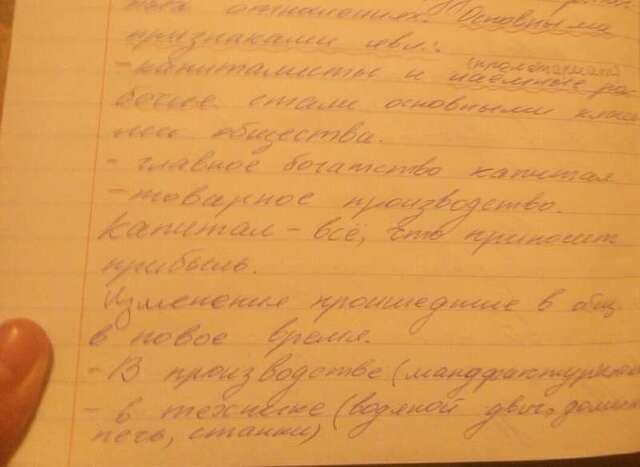 тых отношениях. Основными
признаками явл.:
(пролетариат)
- капиталисты и наёмные ра
бочие стали основными клас
ми общества.
- главное богатство капитал
- товарное производство.
Капитал - всё, что приносит
прибыль.
Изменения произшедшие в общ
в новое время.
- В производстве (мануфактурном
- в технике (водяной двиг, домен
печь, станки)